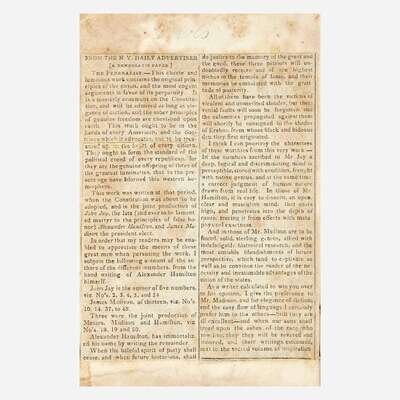 FROM THE N.Y. DAILY ADVERTISER
[A DEMOCRATIC PAPER]
THE FEDERALIST.—This chaste and
luminous work contains the original prin-
ciples of the union, and the most cogent
arguments in favor of its perpetuity. It
is a masterly comment on the Constitu-
tion, and will be admired as long as ele-
gance of diction, and the sober principles
of genuine freedom are cherished upon
earth. This work ought to be in the
hands of every American, and the
in the heart of every citizen.
They ought to form the standard of the
political creed of every republican, for
they are the genuine offspring of three of
the greatest luminaries, that in the pre-
sent age have adorned this western he-
misphere.
This work was written at that period,
when the Constitution was about to be
adopted, and is the joint production of
John Jay, the late (and ever to be lament-
ed martyr to the principles of false ho-
nor) Alexander Hamilton, and James Ma-
dison the president elect.
In order that my readers may be ena-
bled to appreciate the merits of these
great men when perusing the work, I
subjoin the following account of the au-
thors of the different numbers, from the
hand writing of Alexander Hamilton
himself.
John Jay is the author of five numbers,
viz. No's. 2, 3, 4, 5, and 54
James Madison, of thirteen, viz. No's
10, 14, 37, to 48.
Three were the joint production of
Messrs. Madison and Hamilton, viz
No's. 18, 19 and 20.
Alexander Hamilton, has immortaliz-
ed his name by writing the remainder.
When the baleful spirit of party shall
cease, and when future historians, shall
do justice to the memory of the great and
the good, these three patriots will un-
doubtedly receive one of the highest
niches in the temple of fame, and their
memories be embalmed with the grati-
tude of posterity.
All of them have been the victims of
virulent and unmerited slander, but their
venial faults will soon be forgotten and
the calumnies propagated against them
will shortly be consigned to the shades
of Erebus, from whose black and hideous
den they first originated.
I think I can perceive the characters
of these worthies from this very work—
In the numbers ascribed to Mr Jay a
deep, logical and discriminating mind is
perceptible, stored with erudition, fraught
with native genius, and at the same time
a correct judgment of human nature
drawn from real life. In those of Mr.
Hamilton, it is easy to discern, an oper-
clear and masculine mind, that soars
high, and penetrates into the depth of
causes, tracing it from effects with meta-
physical exactness.
And in those of Mr. Madison are to be
found, solid, sterling genius, allied with
indefatigable historical research, and the
most amiable blandishments of future
perspective, which tend to captivate as
well as to convince the reader of the ne-
cessity and invaluable advantages of the
union of the states.
As a writer calculated to win you over
to his opinion, I give the preference to
Mr. Madison, and for elegance of diction,
and the easy flow of language I certainly
prefer him to the others—Still they are
all excellent—and when our sons shall
tread upon the ashes of the race who
now live, they they will be revered and
adored, and their writings esteemed,
next to the sacred volume of inspiration